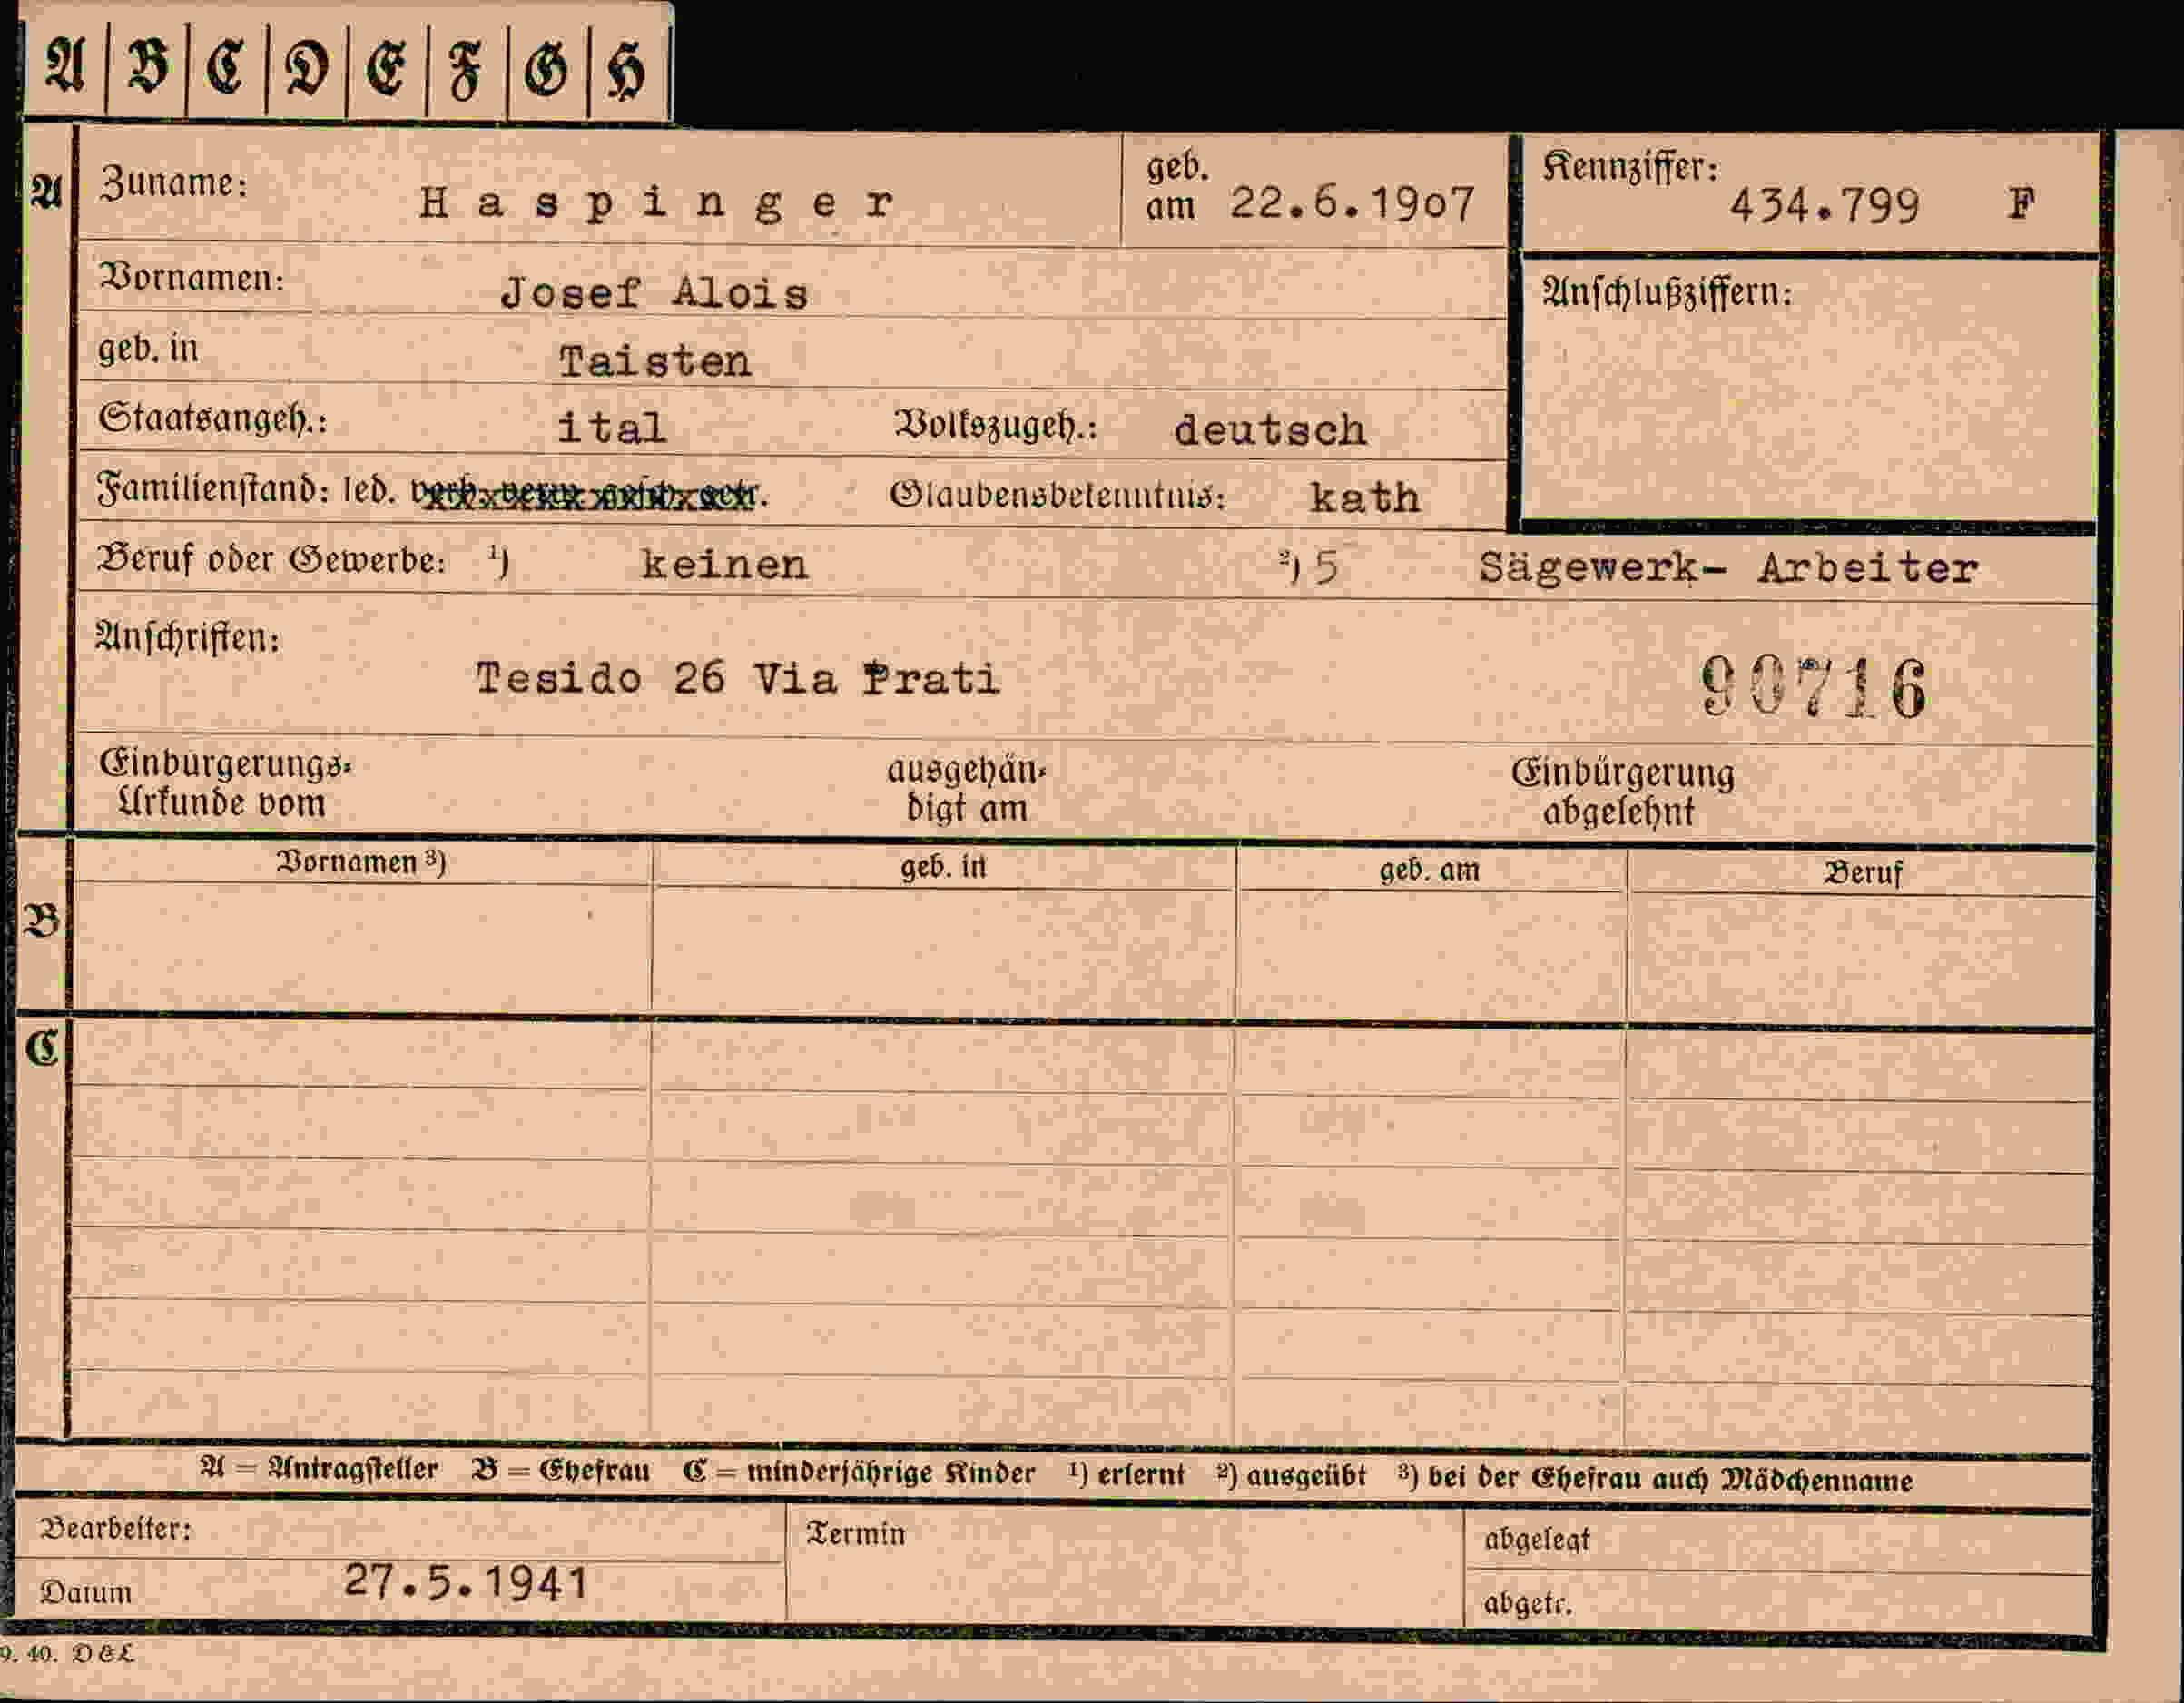 A B C D E F G H
A Zuname: Haspinger geb. am 22.6.19o7 Kennziffer: 434.799 F
Vornamen: Josef Alois Anschlußziffern:
geb. in Taisten
Staatsangeh.: ital Volkszugeh.: deutsch
Familienstand: led. verh. verw. gesch. getr. Glaubensbekenntnis: kath
Beruf oder Gewerbe: ¹) keinen ²) 5 Sägewerk- Arbeiter
Anschriften:
Tesido 26 Via Prati 90716
Einbürgerungs- ausgehän- Einbürgerung
Urkunde vom digt am abgelehnt
Vornamen ³) geb. in geb. am Beruf
B
C
A = Antragsteller B = Ehefrau C = minderjährige Kinder ¹) erlernt ²) ausgeübt ³) bei der Ehefrau auch Mädchenname
Bearbeiter: Termin abgelegt
Datum 27.5.1941 abgetr.
9. 40. D&L